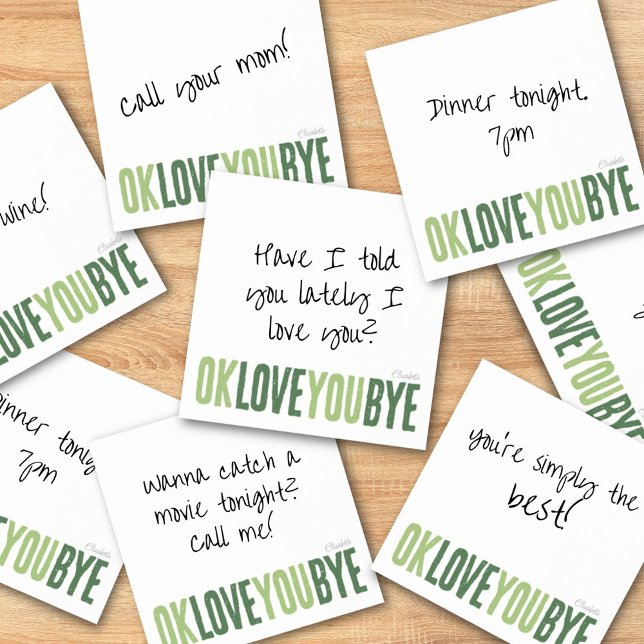 call your mom!
Elizabeth
OKLOVEYOUBYE
Dinner tonight.
7pm
Elizabeth
OKLOVEYOUBYE
wine!
Elizabeth
LOVEYOUBYE
Have I told
you lately I
love you?
Elizabeth
OKLOVEYOUBYE
OKLOVEYOUBYE
Dinner tonig
7pm
Elizabeth
LOVEYOUBYE
Wanna catch a
movie tonight?
Call me!
Elizabeth
OKLOVEYOUBYE
you're simply the
best!
Elizabeth
OKLOVEYOUBYE